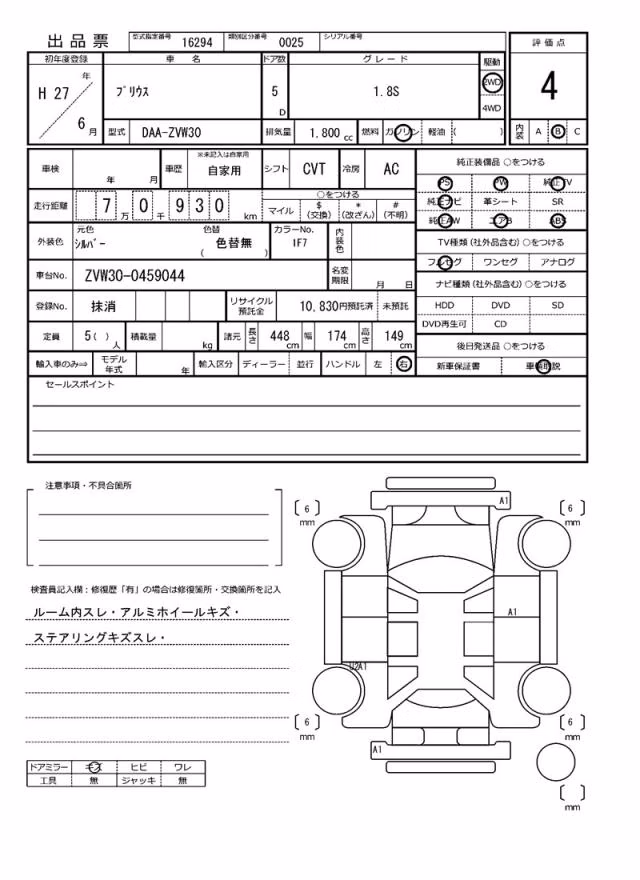 出品票 型式指定番号 16294 類別区分番号 0025 シリアル番号
評価点
初年度登録 車名 ドア数 グレード 駆動
H 27 年 6 月 プリウス 5 D 1.8S 2WD 4WD
4
型式 DAA-ZVW30 排気量 1.800 cc 燃料 ガソリン 軽油 ( )
内装 A B C
車検 年 月 車歴 ※未記入は自家用 自家用 シフト CVT 冷房 AC
純正装備品 ○をつける
PS PW 純正TV
純正ナビ 革シート SR
純正AW エアB ABS
走行距離 7 万 0 千 9 3 0 km
○をつける
マイル $(交換) *(改ざん) #(不明)
外装色 元色 シルバー 色替 ( 色替無 ) カラーNo. 1F7 内装色
TV種類(社外品含む)○をつける
フルセグ ワンセグ アナログ
車台No. ZVW30-0459044 名変期限 月 日
ナビ種類(社外品含む)○をつける
HDD DVD SD
DVD再生可 CD
登録No. 抹消 リサイクル預託金 10,830円預託済 未預託
定員 5( ) 人 積載量 kg 諸元 長さ 448 cm 幅 174 cm 高さ 149 cm
後日発送品 ○をつける
新車保証書 車輌取説
輸入車のみ⇒ モデル年式 年 輸入区分 ディーラー 並行 ハンドル 左 右
セールスポイント
注意事項・不具合箇所
検査員記入欄：修復歴「有」の場合は修復箇所・交換箇所を記入
ルーム内スレ・アルミホイールキズ・
ステアリングキズスレ・
ドアミラー キズ ヒビ ワレ
工具 無 ジャッキ 無
A1
[ 6 ] mm
[ 6 ] mm
A1
U2A1
[ 6 ] mm
[ 6 ] mm
A1
[ ] mm